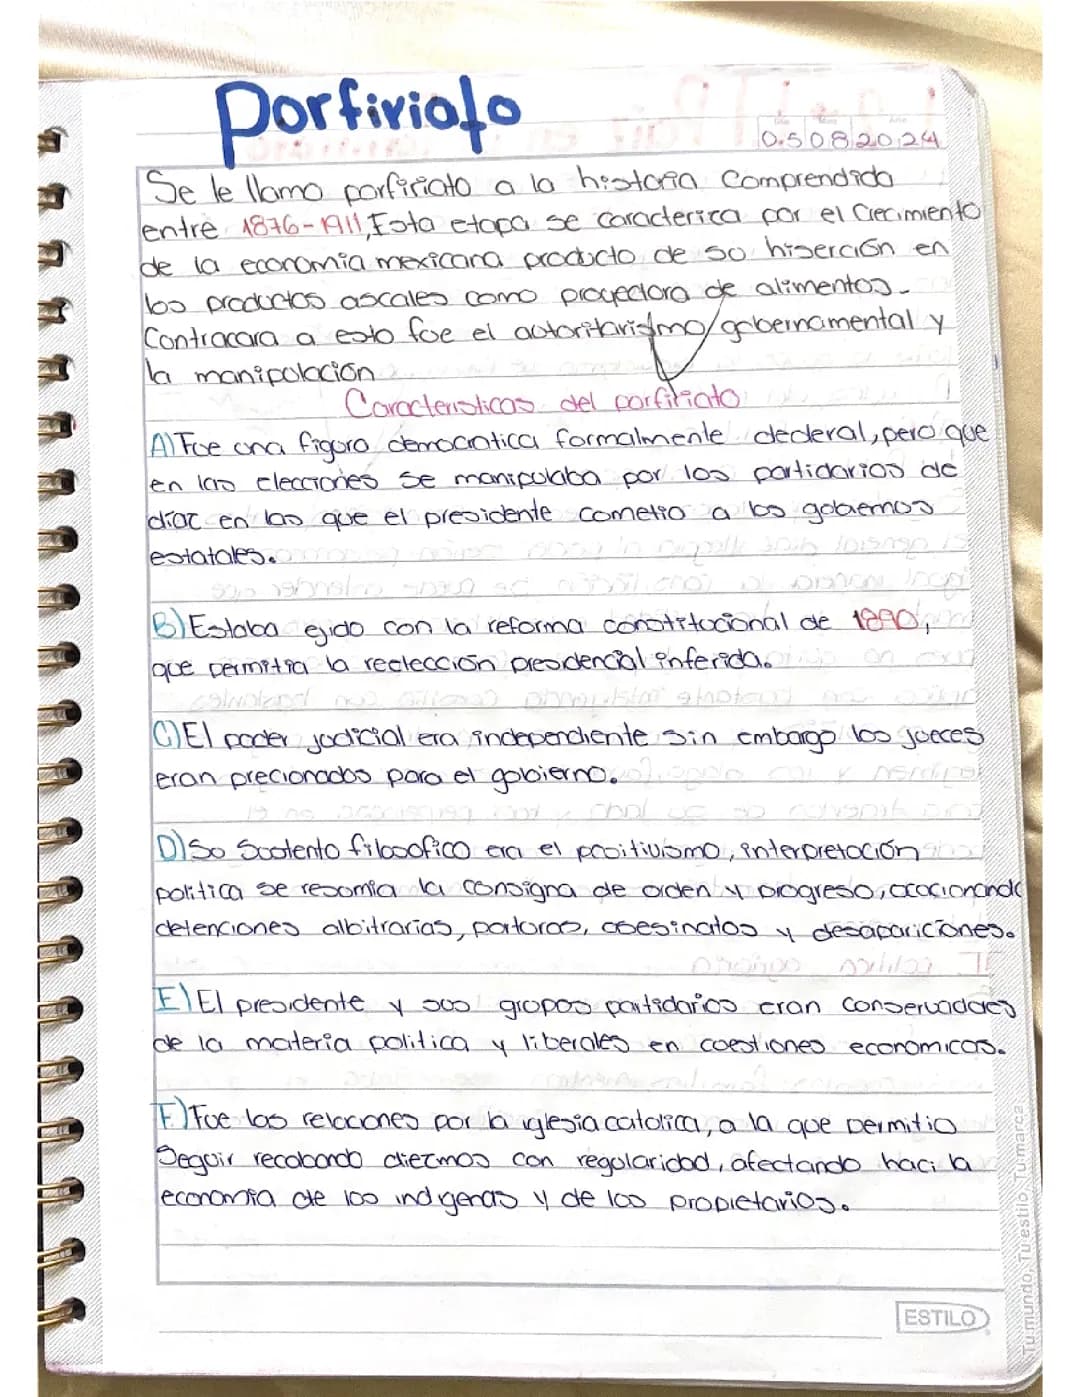 Porfiriato
05 08 2024
Se le llamo porfiriato a la historia Comprendida
entre 1876-1911, Esta etapa se caracteriza por el Crecimiento
de la economia mexicana producto de su hiserción en
los productos ascales como proyectora de alimentos.
Contracara a esto fue el autoritarismo/gobernamental y
la manipulación
Caracteristicas del porfiriato
A) Fue una figura democratica formalmente dederal, pero que
en las elecciones se manipulaba por los partidarios de
díaz en las que el presidente cometio a los gobiernos
estatales.
B) Estaba egido con la reforma constitucional de 1890,
que permitia la reelección presidencial inferida.
C) El poder judicial era independiente sin embargo los jueces
eran precionados para el gobierno.
D) Su Sustento filosofico era el positivismo, interpretación
politica se resumia la consigna de orden y progreso, ocacionando
detenciones albitrarias, porturas, asesinatos y desapariciones.
E) El presidente y sus grupos partidarios eran Conservadores
de la materia politica y liberales en cuestiones economicas.
F) Fue las relaciones por la iglesia catolica, a la que permitio
Seguir recabando diezmos con regularidad, afectando haci la
economia de los indigenas y de los propietarios.
ESTILO
Tu mundo, Tu estilo, Tu marca